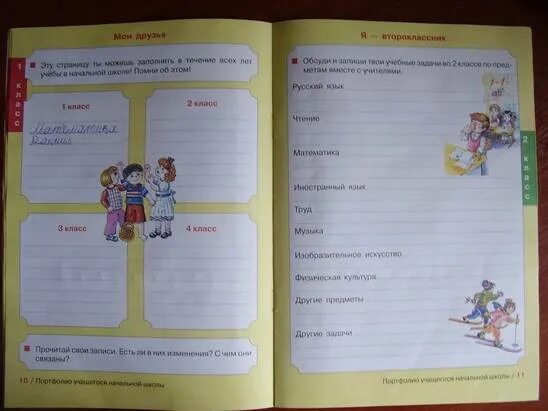 Мои друзья
Эту страницу ты можешь заполнять в течение всех лет
учёбы в начальной школе! Помни об этом!
1 класс
2 класс
Математика
3 класс
4 класс
Прочитай свои записи. Есть ли в них изменения? С чем они
связаны?
10 / Портфолио учащегося начальной школы
1 класс
Я — второклассник
Обсуди и запиши твои учебные задачи во 2 классе по пред-
метам вместе с учителями.
Русский язык
Чтение
Математика
Иностранный язык
Труд
Музыка
Изобразительное искусство
Физическая культура
Другие предметы
Другие задачи
Портфолио учащегося начальной школы / 11
2 класс